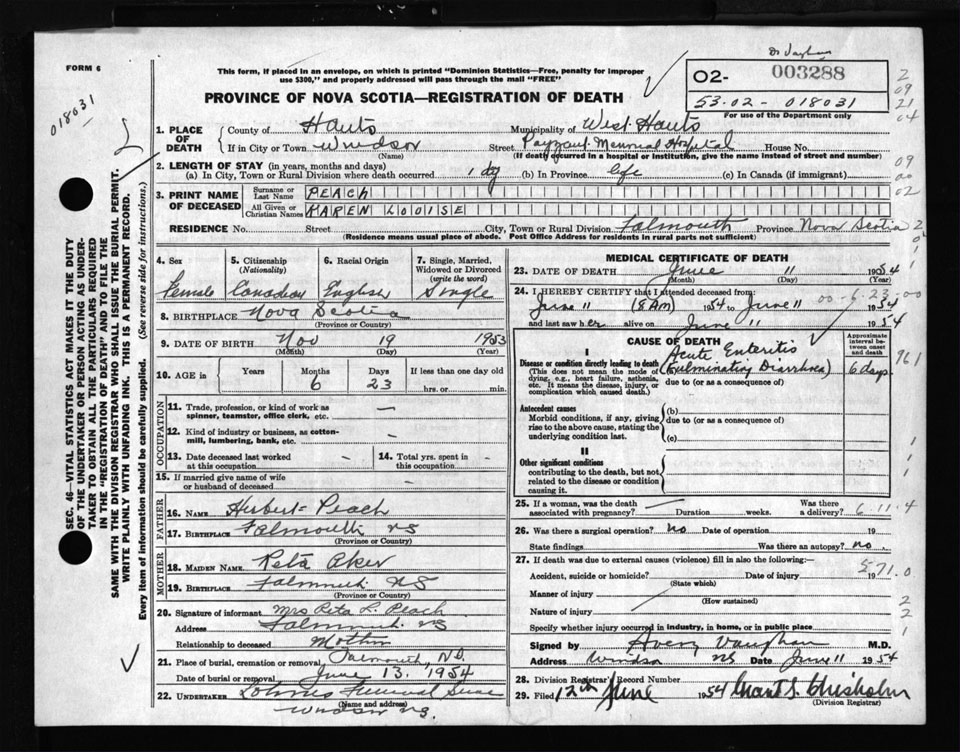 Dr Vaughan
FORM 6
This form, if placed in an envelope, on which is printed "Dominion Statistics—Free, penalty for improper
use $300," and properly addressed will pass through the mail "FREE"
02- 003288
53.02 - 018031
For use of the Department only
018031
PROVINCE OF NOVA SCOTIA—REGISTRATION OF DEATH
1. PLACE OF DEATH { County of Hants Municipality of West Hants
If in City or Town Windsor Street Payzant Memorial Hospital House No.
(Name) (If death occurred in a hospital or institution, give the name instead of street and number)
2. LENGTH OF STAY (in years, months and days)
(a) In City, Town or Rural Division where death occurred 1 dy (b) In Province life (c) In Canada (if immigrant)
3. PRINT NAME OF DECEASED { Surname or Last Name PEACH
All Given or Christian Names KAREN LOUISE
RESIDENCE No. Street City, Town or Rural Division Falmouth Province Nova Scotia
(Residence means usual place of abode. Post Office Address for residents in rural parts not sufficient)
4. Sex Female
5. Citizenship (Nationality) Canadian
6. Racial Origin English
7. Single, Married, Widowed or Divorced (write the word) Single
8. BIRTHPLACE Nova Scotia
(Province or Country)
9. DATE OF BIRTH Nov 19 1953
(Month) (Day) (Year)
10. AGE in { Years Months 6 Days 23 If less than one day old
hrs. or min.
OCCUPATION
11. Trade, profession, or kind of work as spinner, teamster, office clerk, etc. —
12. Kind of industry or business, as cotton-mill, lumbering, bank, etc. —
13. Date deceased last worked at this occupation — 14. Total yrs. spent in this occupation —
15. If married give name of wife or husband of deceased —
FATHER
16. NAME Herbert Peach
17. BIRTHPLACE Falmouth NS
(Province or Country)
MOTHER
18. MAIDEN NAME Reta Aker
19. BIRTHPLACE Falmouth NS
(Province or Country)
20. Signature of informant Mrs Reta L. Peach
Address Falmouth NS
Relationship to deceased Mother
21. Place of burial, cremation or removal Falmouth, N.S.
Date of burial or removal June 13. 1954
22. UNDERTAKER Funeral
(Name and address)
Windsor NS.
MEDICAL CERTIFICATE OF DEATH
23. DATE OF DEATH June 11 1954
(Month) (Day)
24. I HEREBY CERTIFY that I attended deceased from:
June 11 (8 AM) 1954 to June 11 1954
00-6-23-00
and last saw her alive on June 11 1954
CAUSE OF DEATH
Approximate interval between onset and death
I
Disease or condition directly leading to death
(This does not mean the mode of dying, e.g., heart failure, asthenia, etc. It means the disease, injury, or complication which caused death.)
(a) Acute Enteritis
(Fulminating Diarrhoea) 6 days
due to (or as a consequence of)
Antecedent causes
Morbid conditions, if any, giving rise to the above cause, stating the underlying condition last.
(b)
due to (or as a consequence of)
(c)
II
Other significant conditions
contributing to the death, but not related to the disease or condition causing it.
25. If a woman, was the death associated with pregnancy? Duration weeks. Was there a delivery?
6.11.4
26. Was there a surgical operation? no Date of operation 19
State findings Was there an autopsy? no.
27. If death was due to external causes (violence) fill in also the following:
571.0
Accident, suicide or homicide? Date of injury 19
(State which)
Manner of injury
(How sustained)
Nature of injury
Specify whether injury occurred in industry, in home, or in public place
Signed by Avery Vaughan M.D.
Address Windsor NS Date June 11 1954
28. Division Registrar's Record Number
29. Filed 12th June 1954 Grant S. Chisholm
(Division Registrar)
SEC. 46—VITAL STATISTICS ACT MAKES IT THE DUTY
OF THE UNDERTAKER OR PERSON ACTING AS UNDER-
TAKER TO OBTAIN ALL THE PARTICULARS REQUIRED
IN THE "REGISTRATION OF DEATH" AND TO FILE THE
SAME WITH THE DIVISION REGISTRAR WHO SHALL ISSUE THE BURIAL PERMIT.
WRITE PLAINLY WITH UNFADING INK. THIS IS A PERMANENT RECORD.
Every item of information should be carefully supplied. (See reverse side for instructions.)